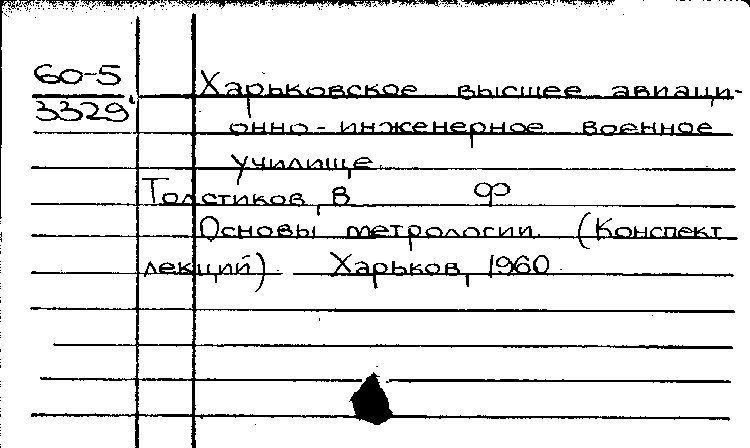 60-5
3329
Харьковское высшее авиаци-
онно-инженерное военное
училище
Толстиков, В Ф
Основы метрологии. (Конспект
лекций) Харьков, 1960